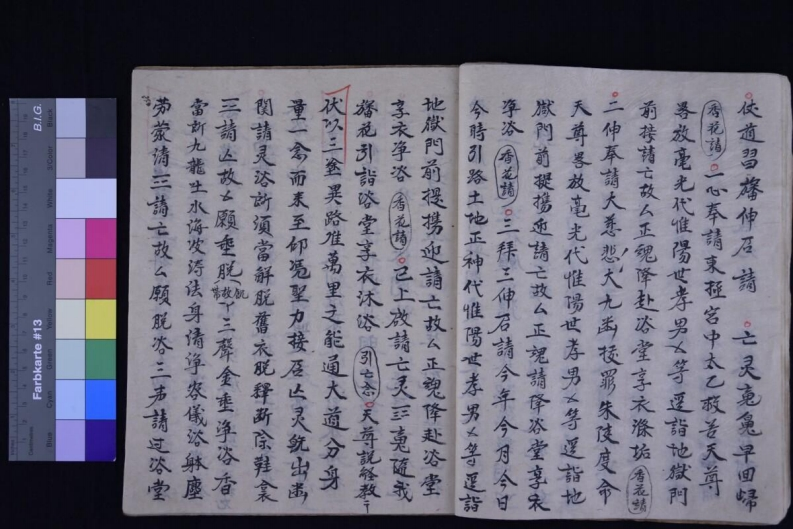 伩道習旛伸召請 亡灵寃䰟早回帰
香花請 一心奉請東極宮中太乙救苦天尊
畧放毫光代惟陽世孝男㐅等逕詣地獄門
前接請亡故厶正魂降赴浴堂享衣滌垢 香花請
二伸奉請大慈悲大九幽拔罪朱陵度命
天尊畧放毫光代惟陽世孝男㐅等逕詣地
獄門前提携迎請亡故厶正魂請降浴堂享衣
净浴 香花請 三拜三伸召請今年今月今日
今時引路土地正神代惟陽世孝男㐅等逕詣
地獄門前提携迎請亡故厶正魂降赴浴堂
享衣净浴 香花請 已上啟請亡灵三寃隨我
旛花引詣浴堂享衣沐浴 引亡念 天尊説經教
伏以三塗異路惟萬里之能通大道分身
量一念而来至仰馮聖力接召亡灵繞出幽
関請灵浴所須當解脱舊衣脱釋断除鞋衾
三請亡故㐅願垂脱 三聲金垂净浴香
當所九龍吐水海發沛法身清淨容儀浴躰塵
劳蒙請三請亡故厶願脱浴三声請过浴堂
Farbkarte #13
B.I.G.
Centimetres
Blue
Cyan
Green
Yellow
Red
Magenta
White
3/Color
Black